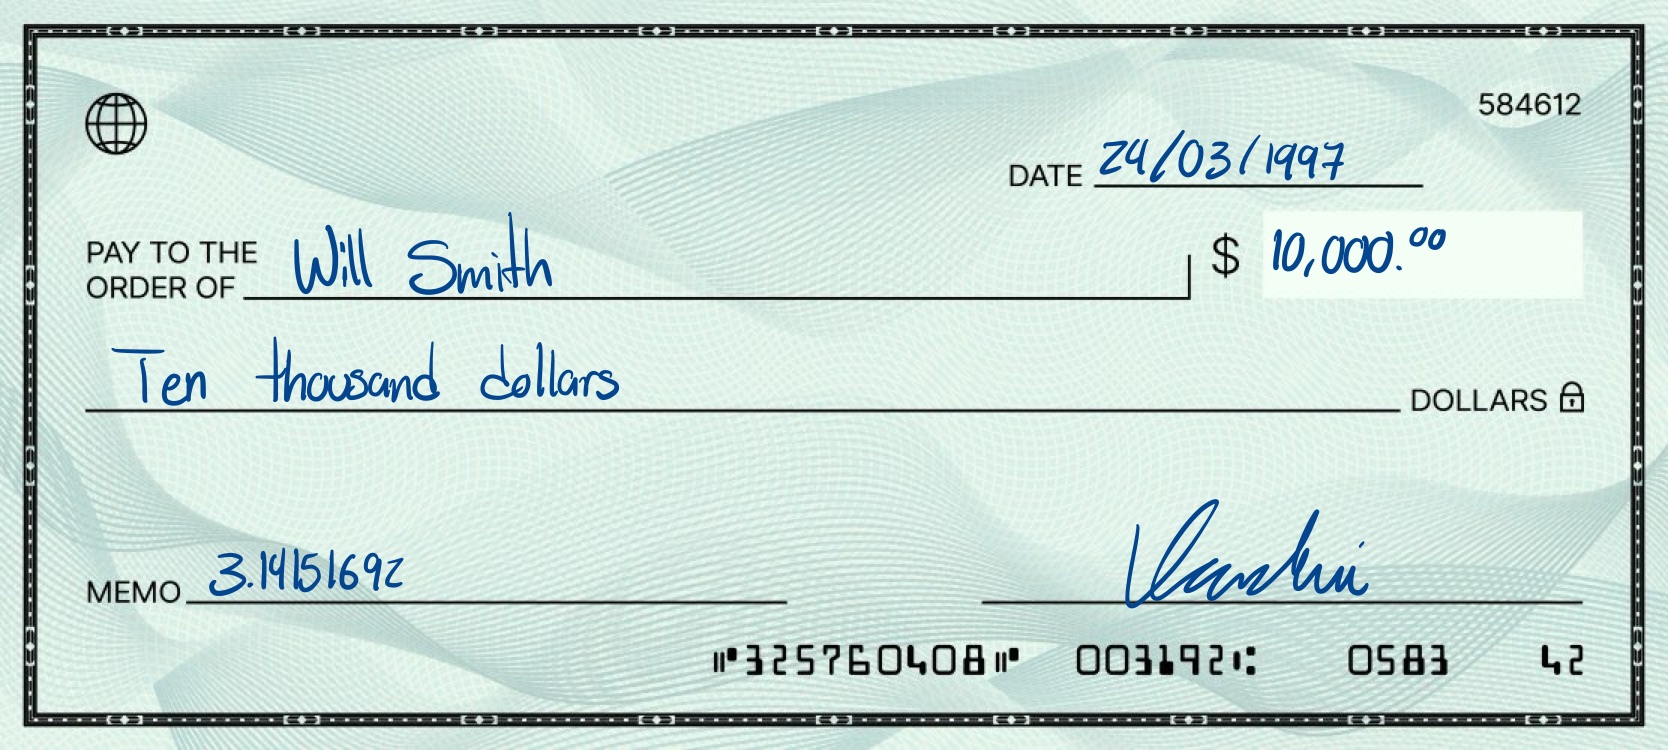 584612
DATE 24/03/1997
PAY TO THE ORDER OF Will Smith $ 10,000.00
Ten thousand dollars DOLLARS
MEMO 3.14151692
⑈325760408⑈ 003192⑆ 0583 42